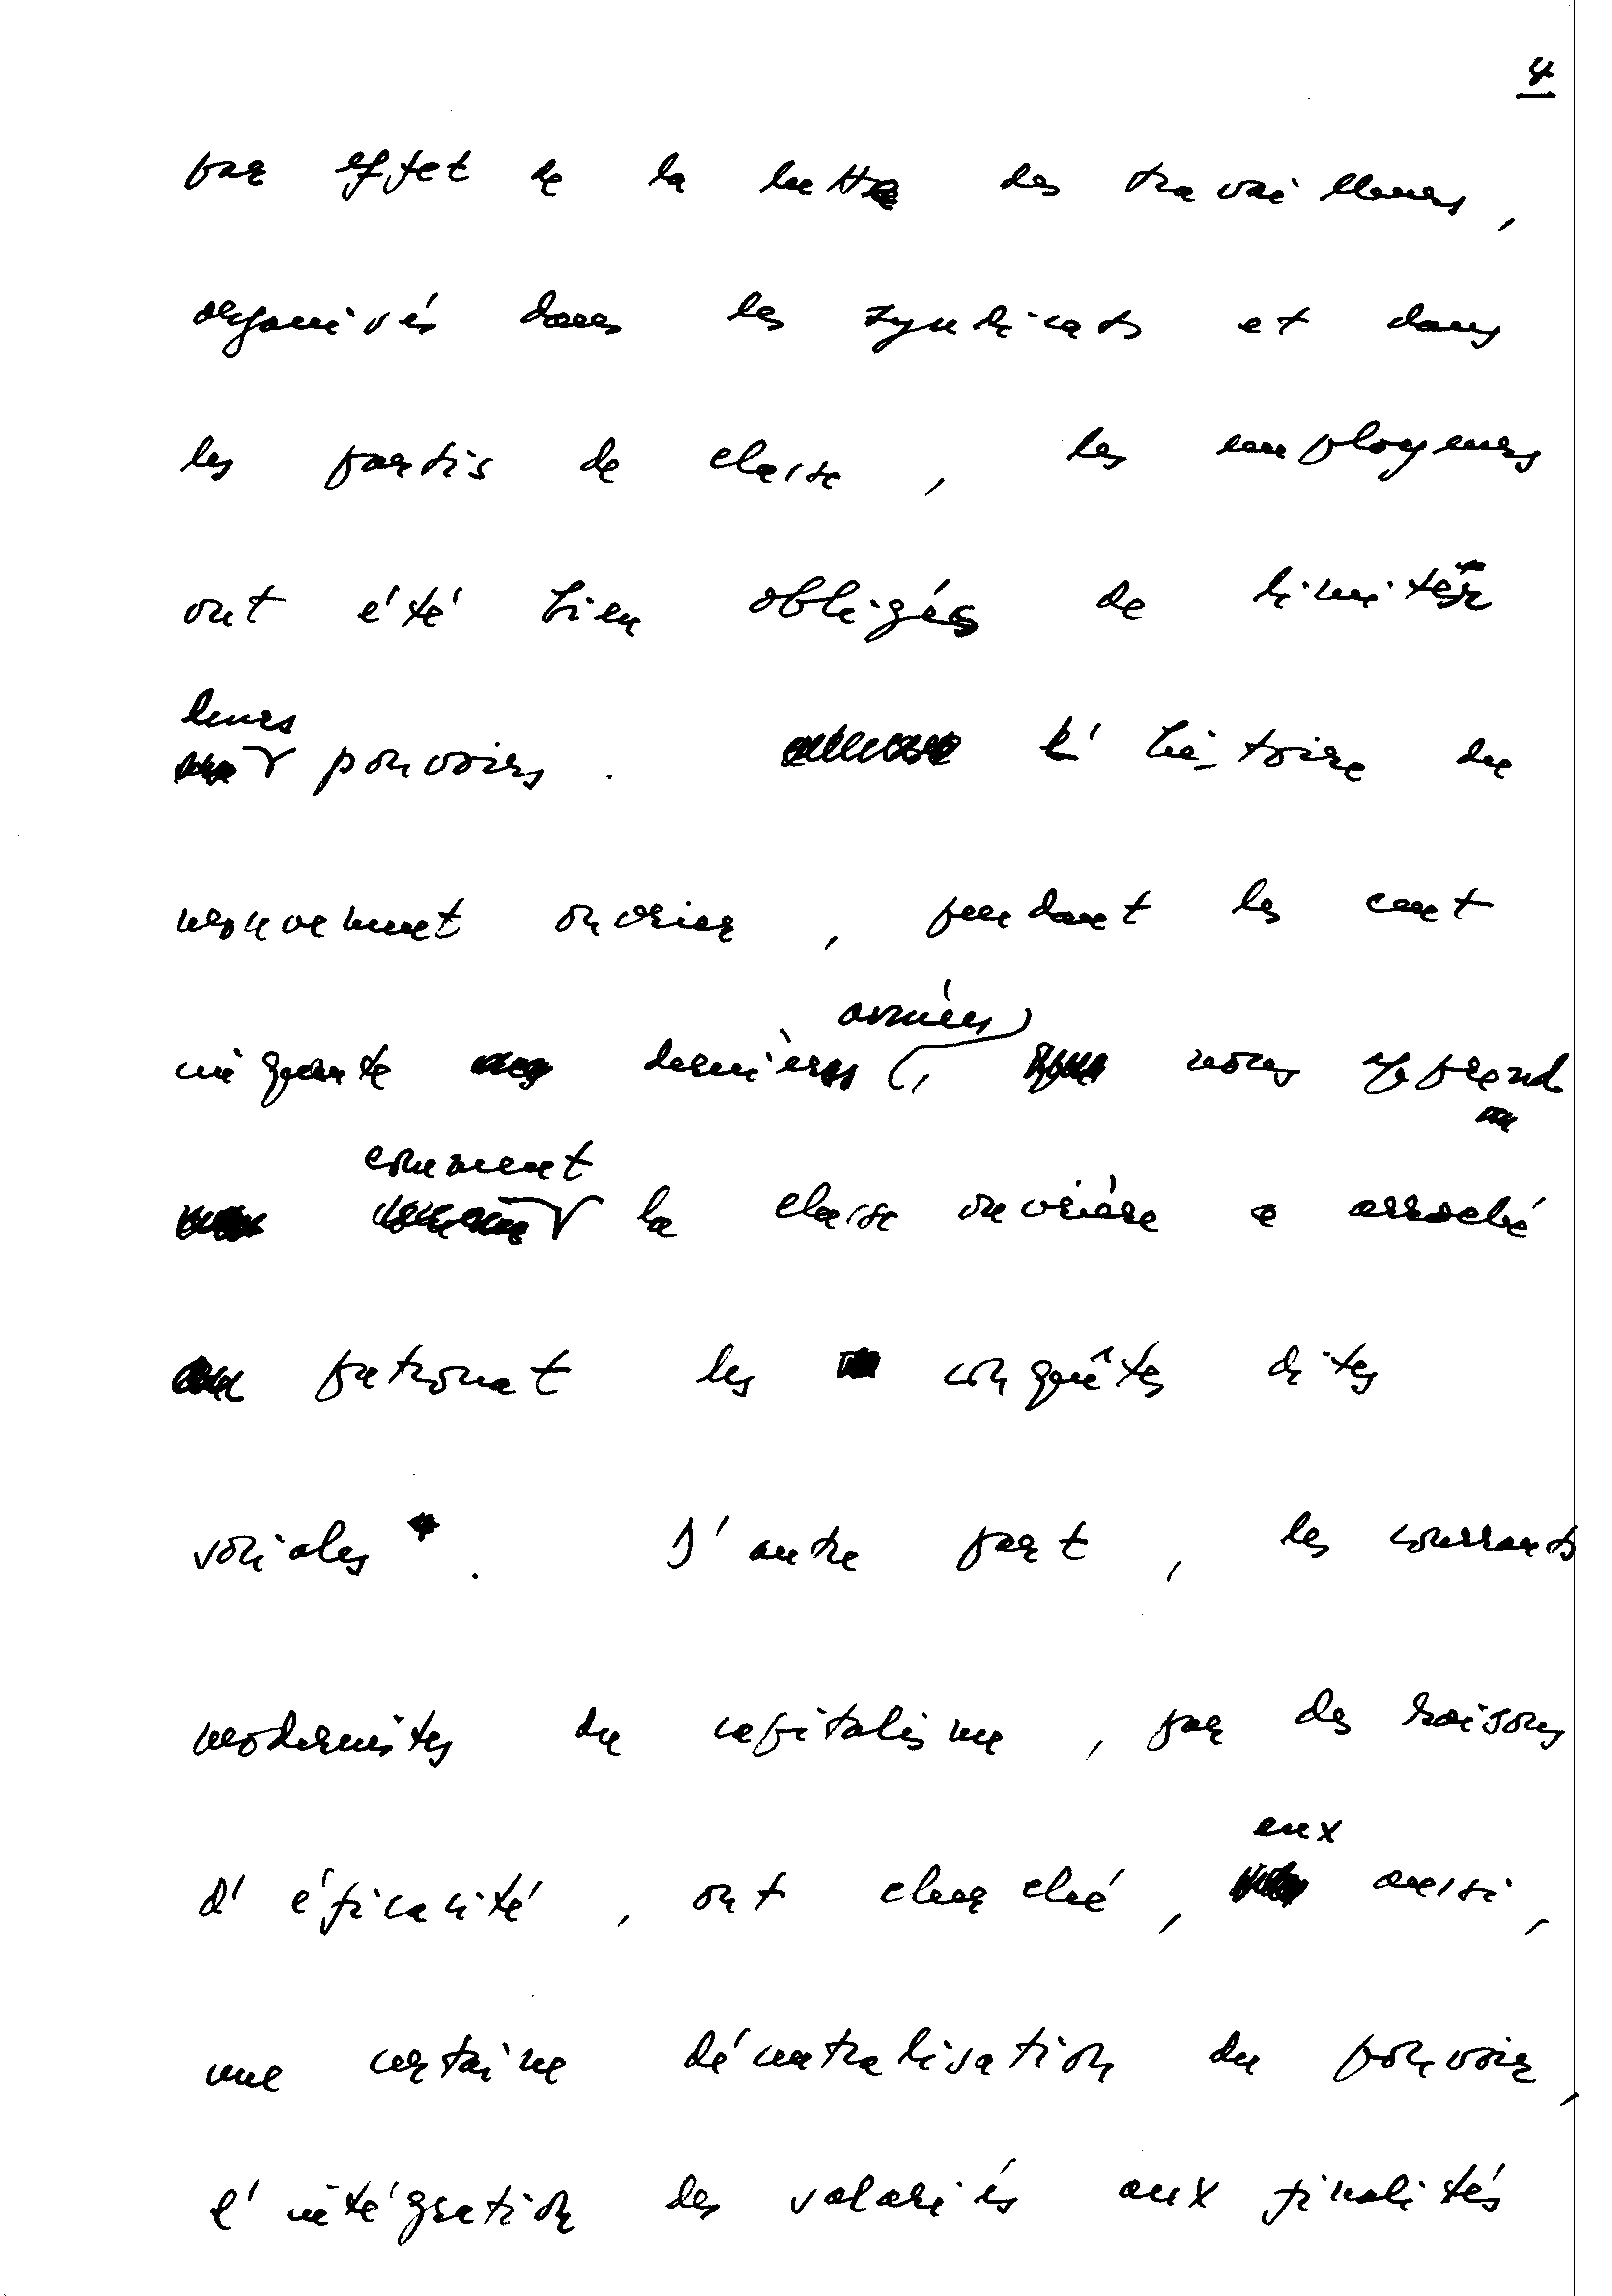 4
par effet de la lutte des travailleurs,
organisés dans les syndicats et dans
les partis de classe, les employeurs
ont été bien obligés de limiter
leurs
pouvoirs. L'histoire du
mouvement ouvrier, pendant les cent
années
cinquante dernières, nous apprend
comment
la classe ouvrière a arraché
au patronat les conquêtes dites
sociales. D'autre part, les courrants
modernistes du capitalisme, par des raisons
d'éficacité, ont cherché, aussi,
eux
une certaine décentralisation du pouvoir,
l'intégration des salariés aux finalités